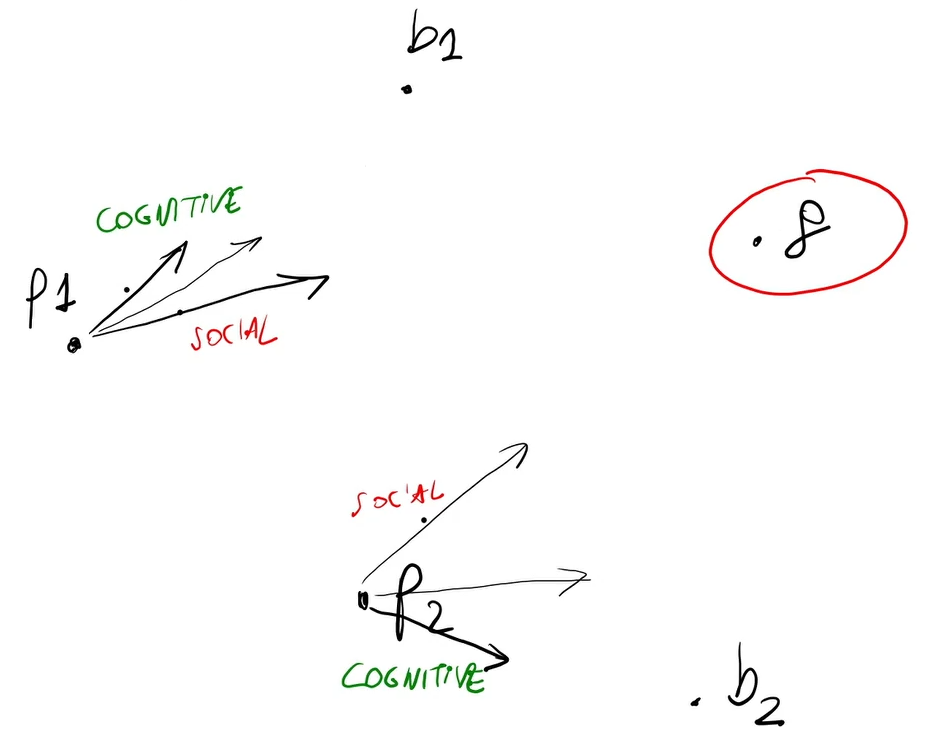 b1
COGNITIVE
g
p1
SOCIAL
SOCIAL
p2
COGNITIVE
b2